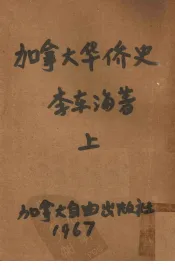 加拿大华侨史
李东海著
上
加拿大自由出版社
1967